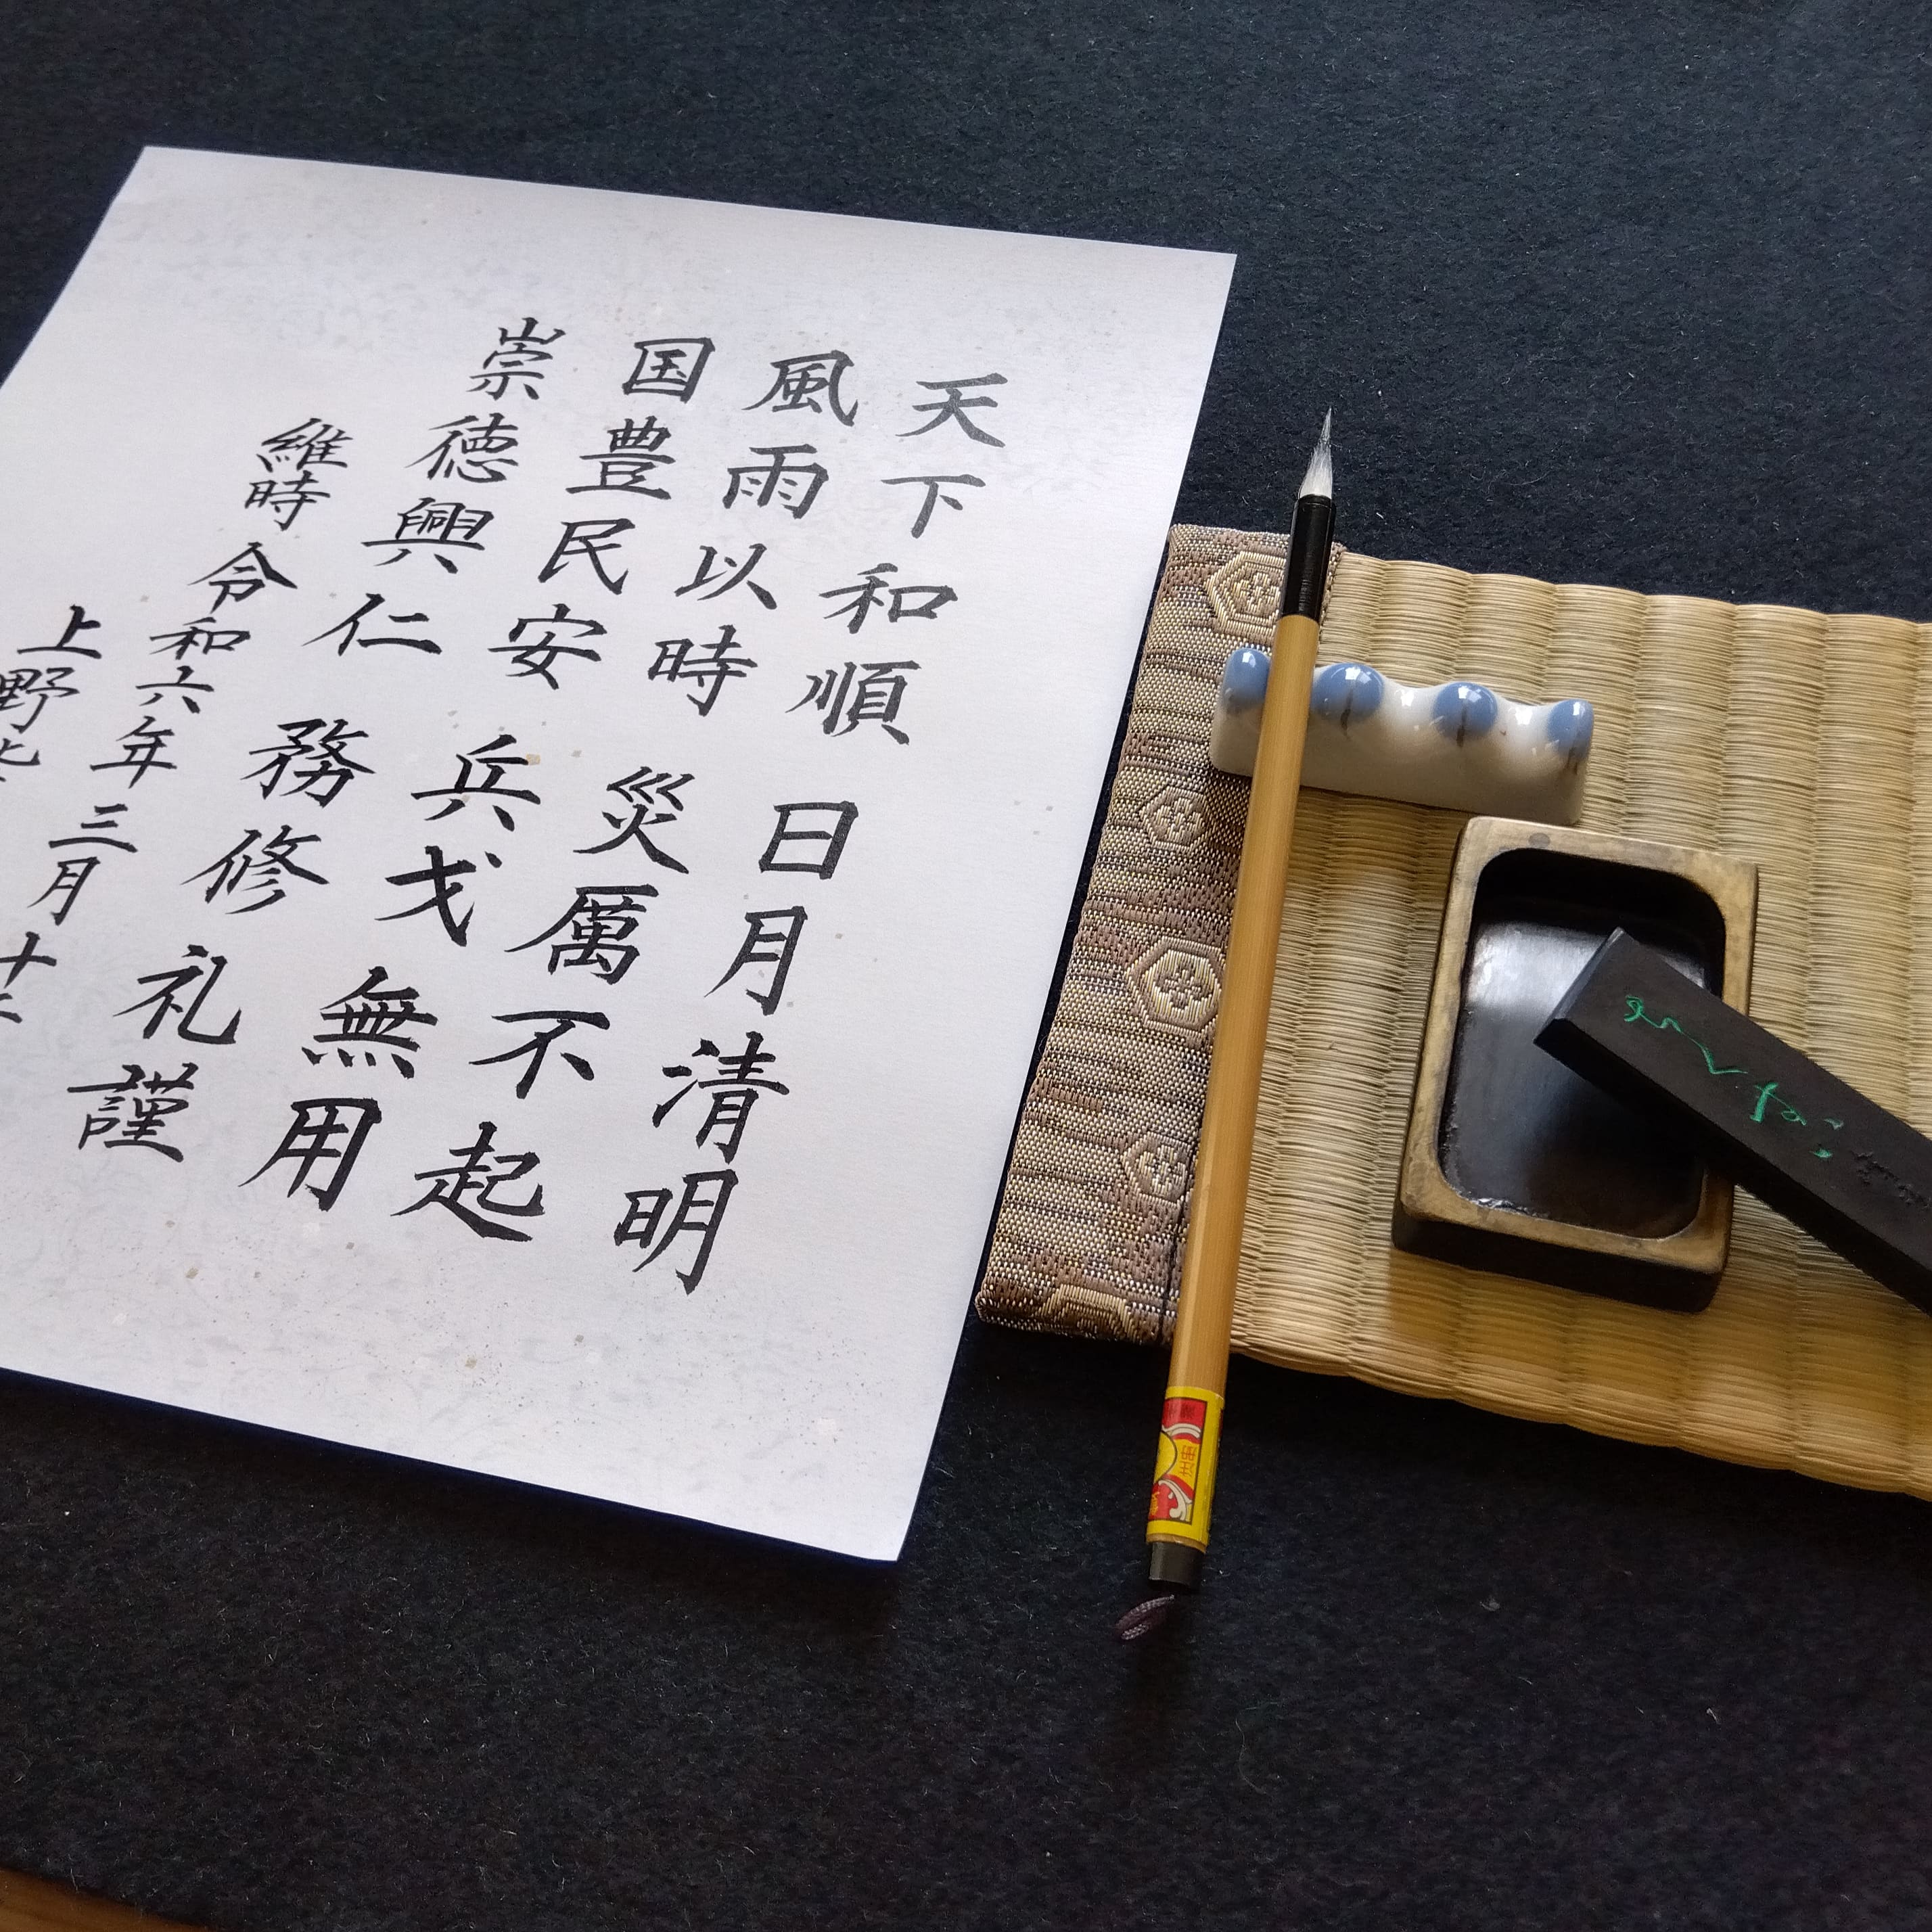 天下和順 日月清明
風雨以時 災厲不起
国豊民安 兵戈無用
崇徳興仁 務修礼謹
維時 令和六年三月十
上野
注册